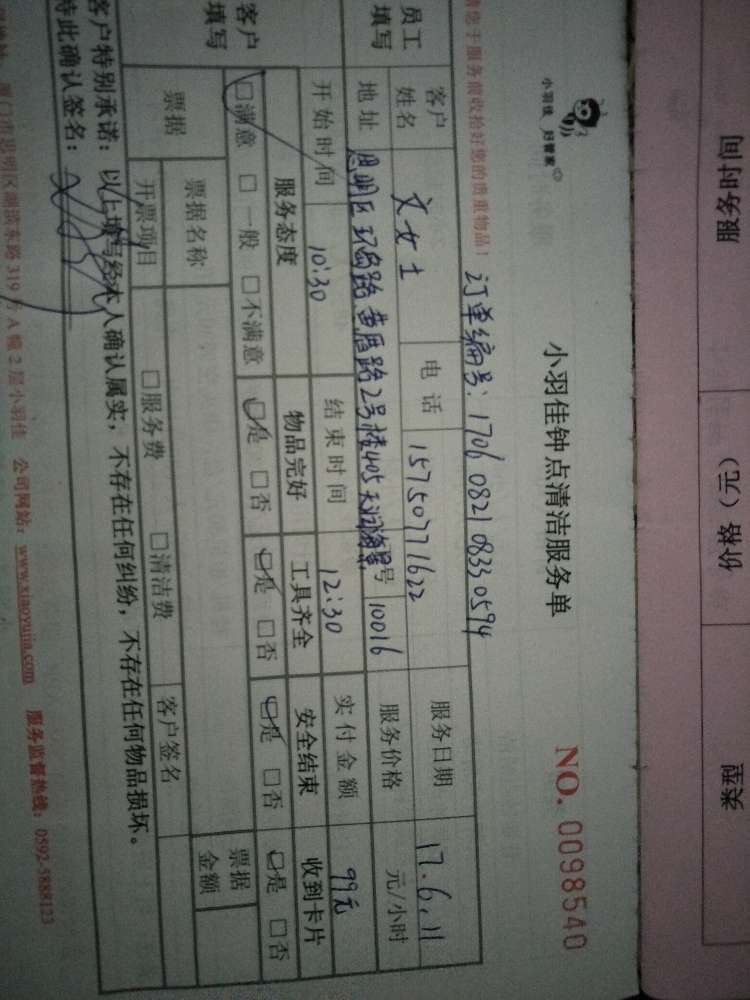 服务时间 价格（元） 类型
小羽佳 好管家
小羽佳钟点清洁服务单 NO. 0098540
订单编号：1706 0821 0833 0594
您于服务前收拾好您的贵重物品！
员工填写 客户姓名 文女士 电话 15750771622 服务日期 17.6.11
地址 思明区环岛路黄厝路2号楼405天润海景 号 10016 服务价格 元/小时
开始时间 10:30 结束时间 12:30 实付金额 99元
客户填写 服务态度 物品完好 工具齐全 安全结束 收到卡片
□满意 □一般 □不满意 □是 □否 □是 □否 □是 □否 □是 □否
票据 票据名称 票据金额
开票项目 □服务费 □清洁费 客户签名
客户特别承诺：以上填写经本人确认属实，不存在任何纠纷，不存在任何物品损坏。
特此确认签名：
厦门市思明区湖滨东路319号A幢2层小羽佳 公司网站：www.xiaoyujia.com 服务监督热线：0592-5888123